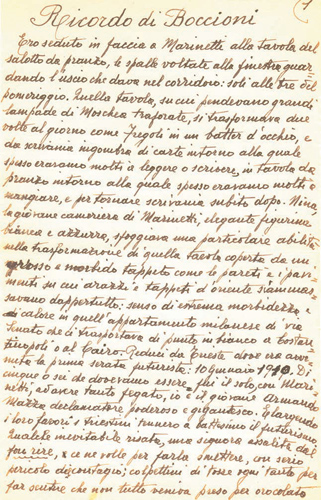 1
Ricordo di Boccioni
Ero seduto in faccia a Marinetti alla tavola del
salotto da pranzo, le spalle voltate alla finestra, guar
dando l'uscio che dava nel corridoio: soli alle tre del
pomeriggio. Quella tavola, su cui pendevano grandi
lampade di Moschea traforate, si trasformava due
volte al giorno come Fregoli in un batter d'occhio, e
da scrivania ingombra di carte intorno alla quale
spesso eravamo molti a leggere o scrivere, in tavola da
pranzo intorno alla quale spesso eravamo molti a
mangiare, e per tornare scrivania subito dopo. Nina,
la giovane cameriera di Marinetti, elegante figurina
bianca e azzurra, sfoggiava una particolare abilità
nella trasformazione di quella tavola coperta da un
grosso e morbido tappeto come le pareti e i pavi
menti in cui arazzi e tappeti d'oriente s'ammas
savano dappertutto: senso di estrema morbidezza e
di calore in quell'appartamento milanese di via
Senato che ti trasportava di punto in bianco a Costan
tinopoli o al Cairo. Reduci da Trieste dove era avve
nuta la prima serata futurista: 10 gennaio 1910. Di
cinque o sei che dovevamo essere, fui il solo, con Mari
netti, ad avere tanto fegato, io e il giovane Armando
Mazza declamatore poderoso e gigantesco. Elargendo
i loro favori i triestini tennero a battesimo il futurismo.
Qualche inevitabile risata, una signora assalita dal
fou rire, e ce ne volle per farla smettere, con serio
pericolo di contagio; colpettini di tosse ogni tanto per
far sentire che non tutto veniva preso per cioccolato